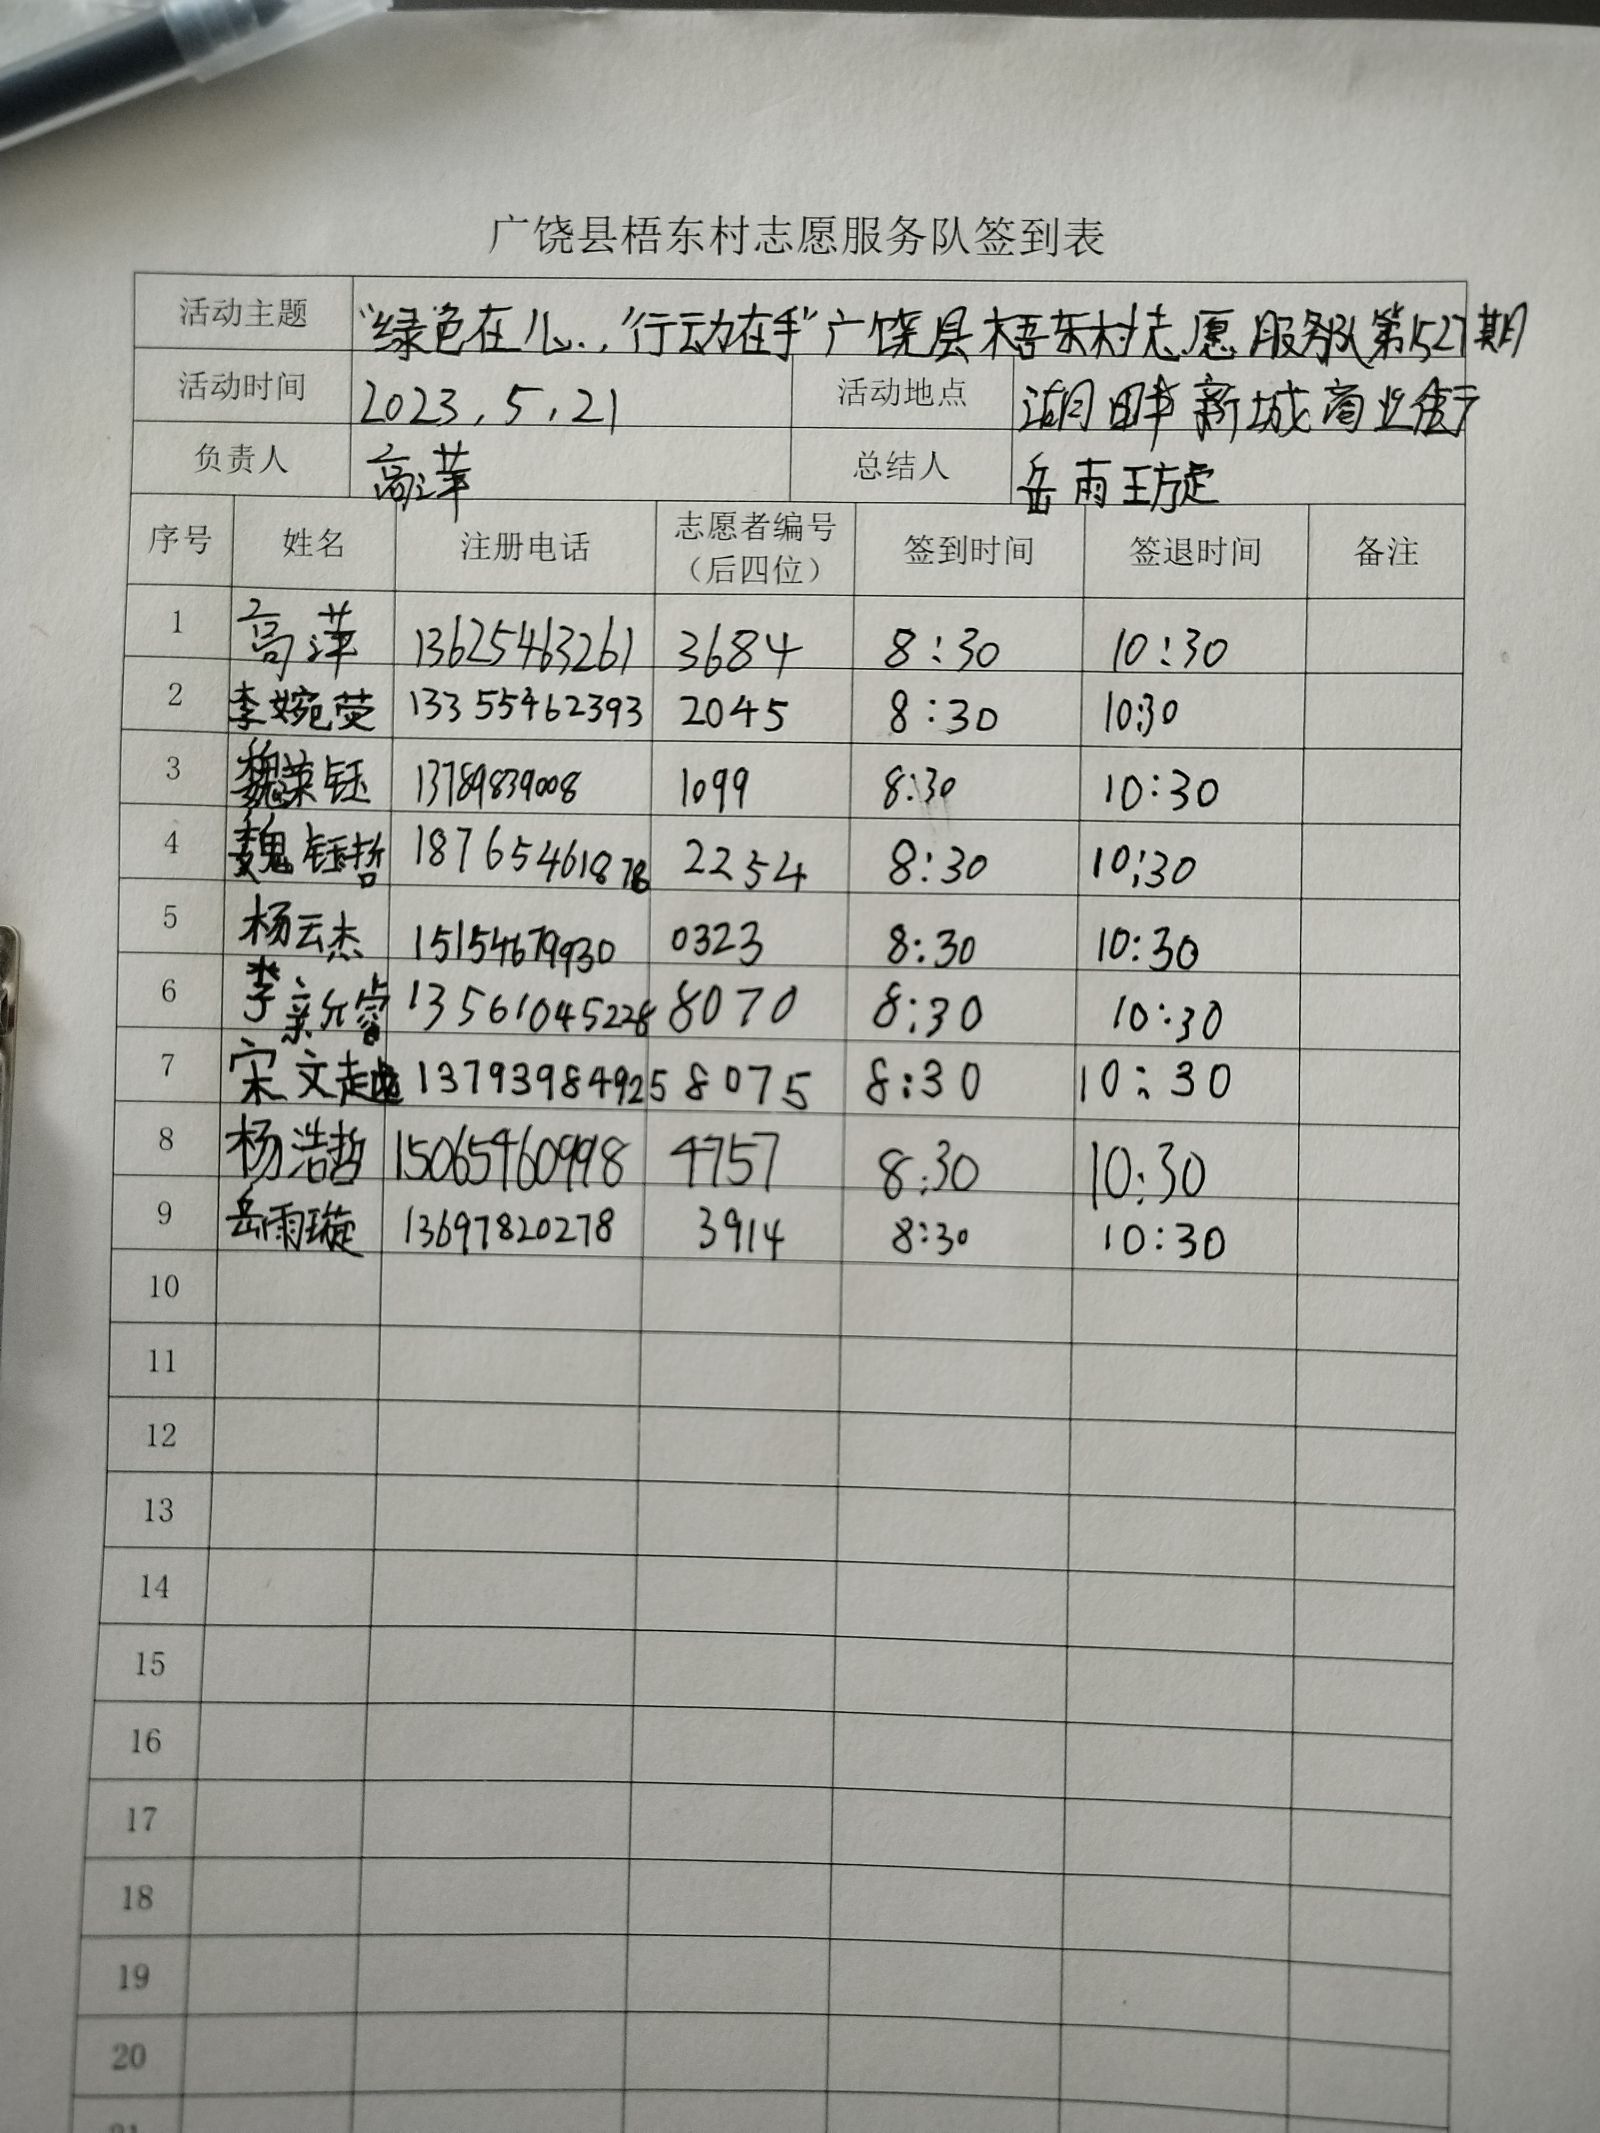 广饶县梧东村志愿服务队签到表
活动主题 “绿色在心，行动在手”广饶县梧东村志愿服务队第1527期
活动时间 2023.5.21 活动地点 湖畔新城商业街
负责人 高萍 总结人 岳雨璇
序号 姓名 注册电话 志愿者编号（后四位） 签到时间 签退时间 备注
1 高萍 13625463261 3684 8:30 10:30
2 李婉荧 13355462393 2045 8:30 10:30
3 魏莱钰 13789839008 1099 8:30 10:30
4 魏钰哲 18765461878 2254 8:30 10:30
5 杨云杰 15154679930 0323 8:30 10:30
6 李 13561045228 8070 8:30 10:30
7 宋文越 13793984925 8075 8:30 10:30
8 杨浩哲 15065460998 4757 8:30 10:30
9 岳雨璇 13697820278 3914 8:30 10:30
10
11
12
13
14
15
16
17
18
19
20